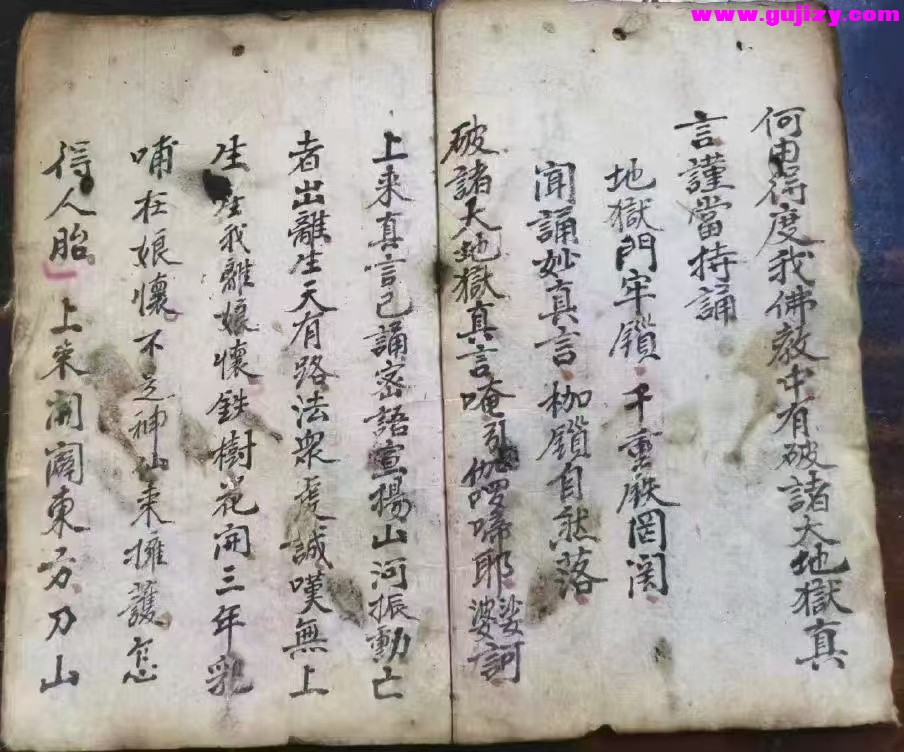 www.gujizy.com
何由得度我佛教中有破諸大地獄真
言謹當持誦
地獄門牢鎖千重鉄罔闭
闻誦妙真言枷鎖自然落
破諸大地獄真言唵引伽啰啼耶娑婆訶
上来真言已誦密語宣揚山河振動亡
者出離生天有路法衆虔誠嘆無上
生生我離娘懷鉄樹花開三年乳
哺在娘懷不是神仙来擁護怎
得人胎上来開闢東方刀山